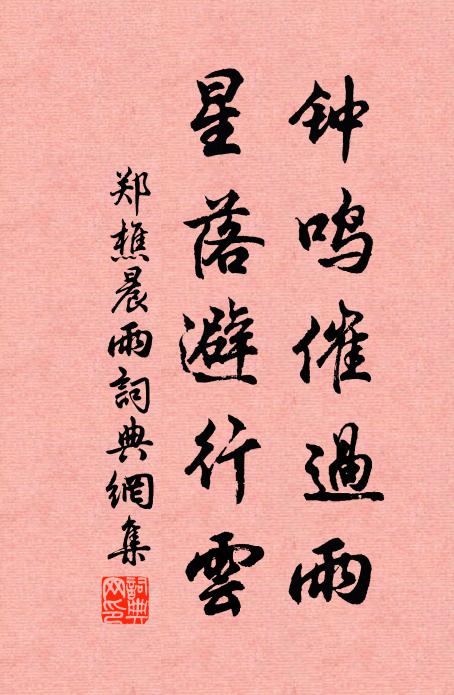 钟鸣催過雨
星落避行雲
郑樵晨雨詞典網集
詞典网印